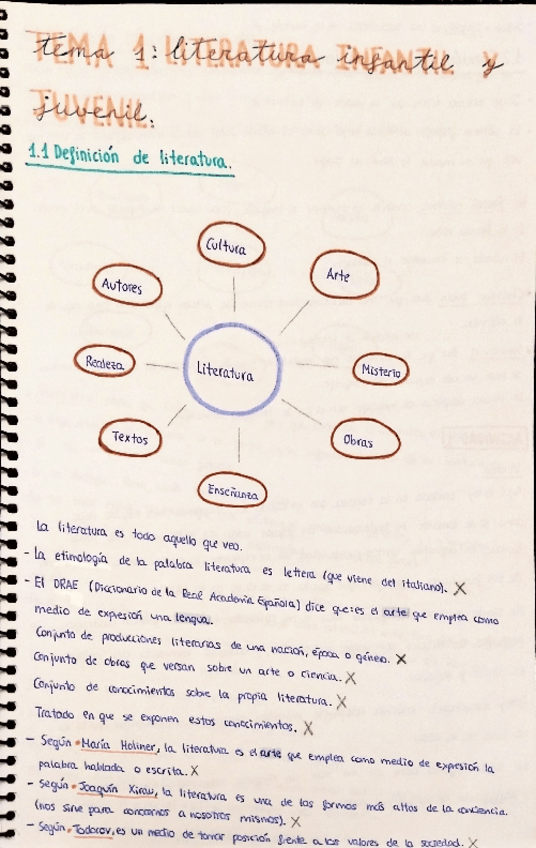 TEMA 1: LITERATURA INFANTIL Y
JUVENIL.
1.1 Definición de literatura.
Cultura
Arte
Autores
Realeza
Literatura
Misterio
Textos
Obras
Enseñanza
La literatura es todo aquello que veo.
- La etimología de la palabra literatura es lettera (que viene del italiano). X
- El DRAE (Diccionario de la Real Academia Española) dice que: es el arte que emplea como
medio de expresión una lengua.
Conjunto de producciones literarias de una nación, época o género. X
Conjunto de obras que versan sobre un arte o ciencia. X
Conjunto de conocimientos sobre la propia literatura. X
Tratado en que se exponen estos conocimientos. X
- Según María Moliner, la literatura es el arte que emplea como medio de expresión la
palabra hablada o escrita. X
- Según Joaquín Xirau, la literatura es una de las formas más altas de la conciencia.
(nos sirve para conocernos a nosotros mismos). X
- Según Todorov, es un medio de tomar posición frente a los valores de la sociedad. X